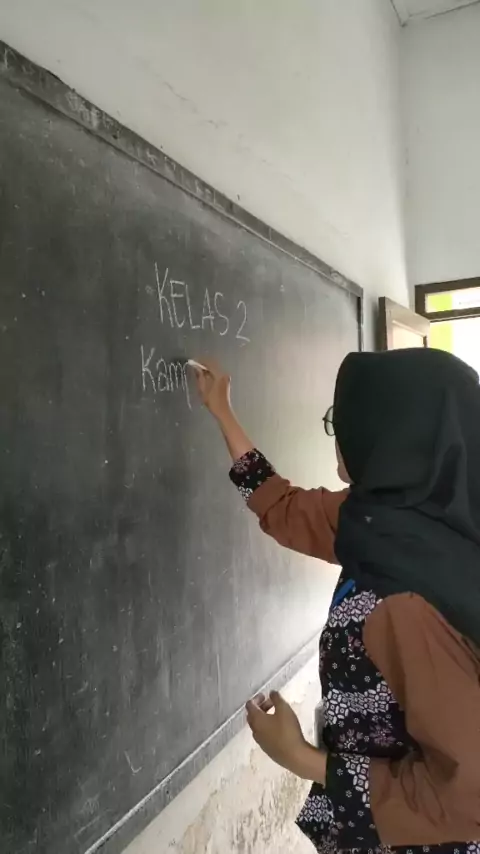 KELAS 2
Kamp